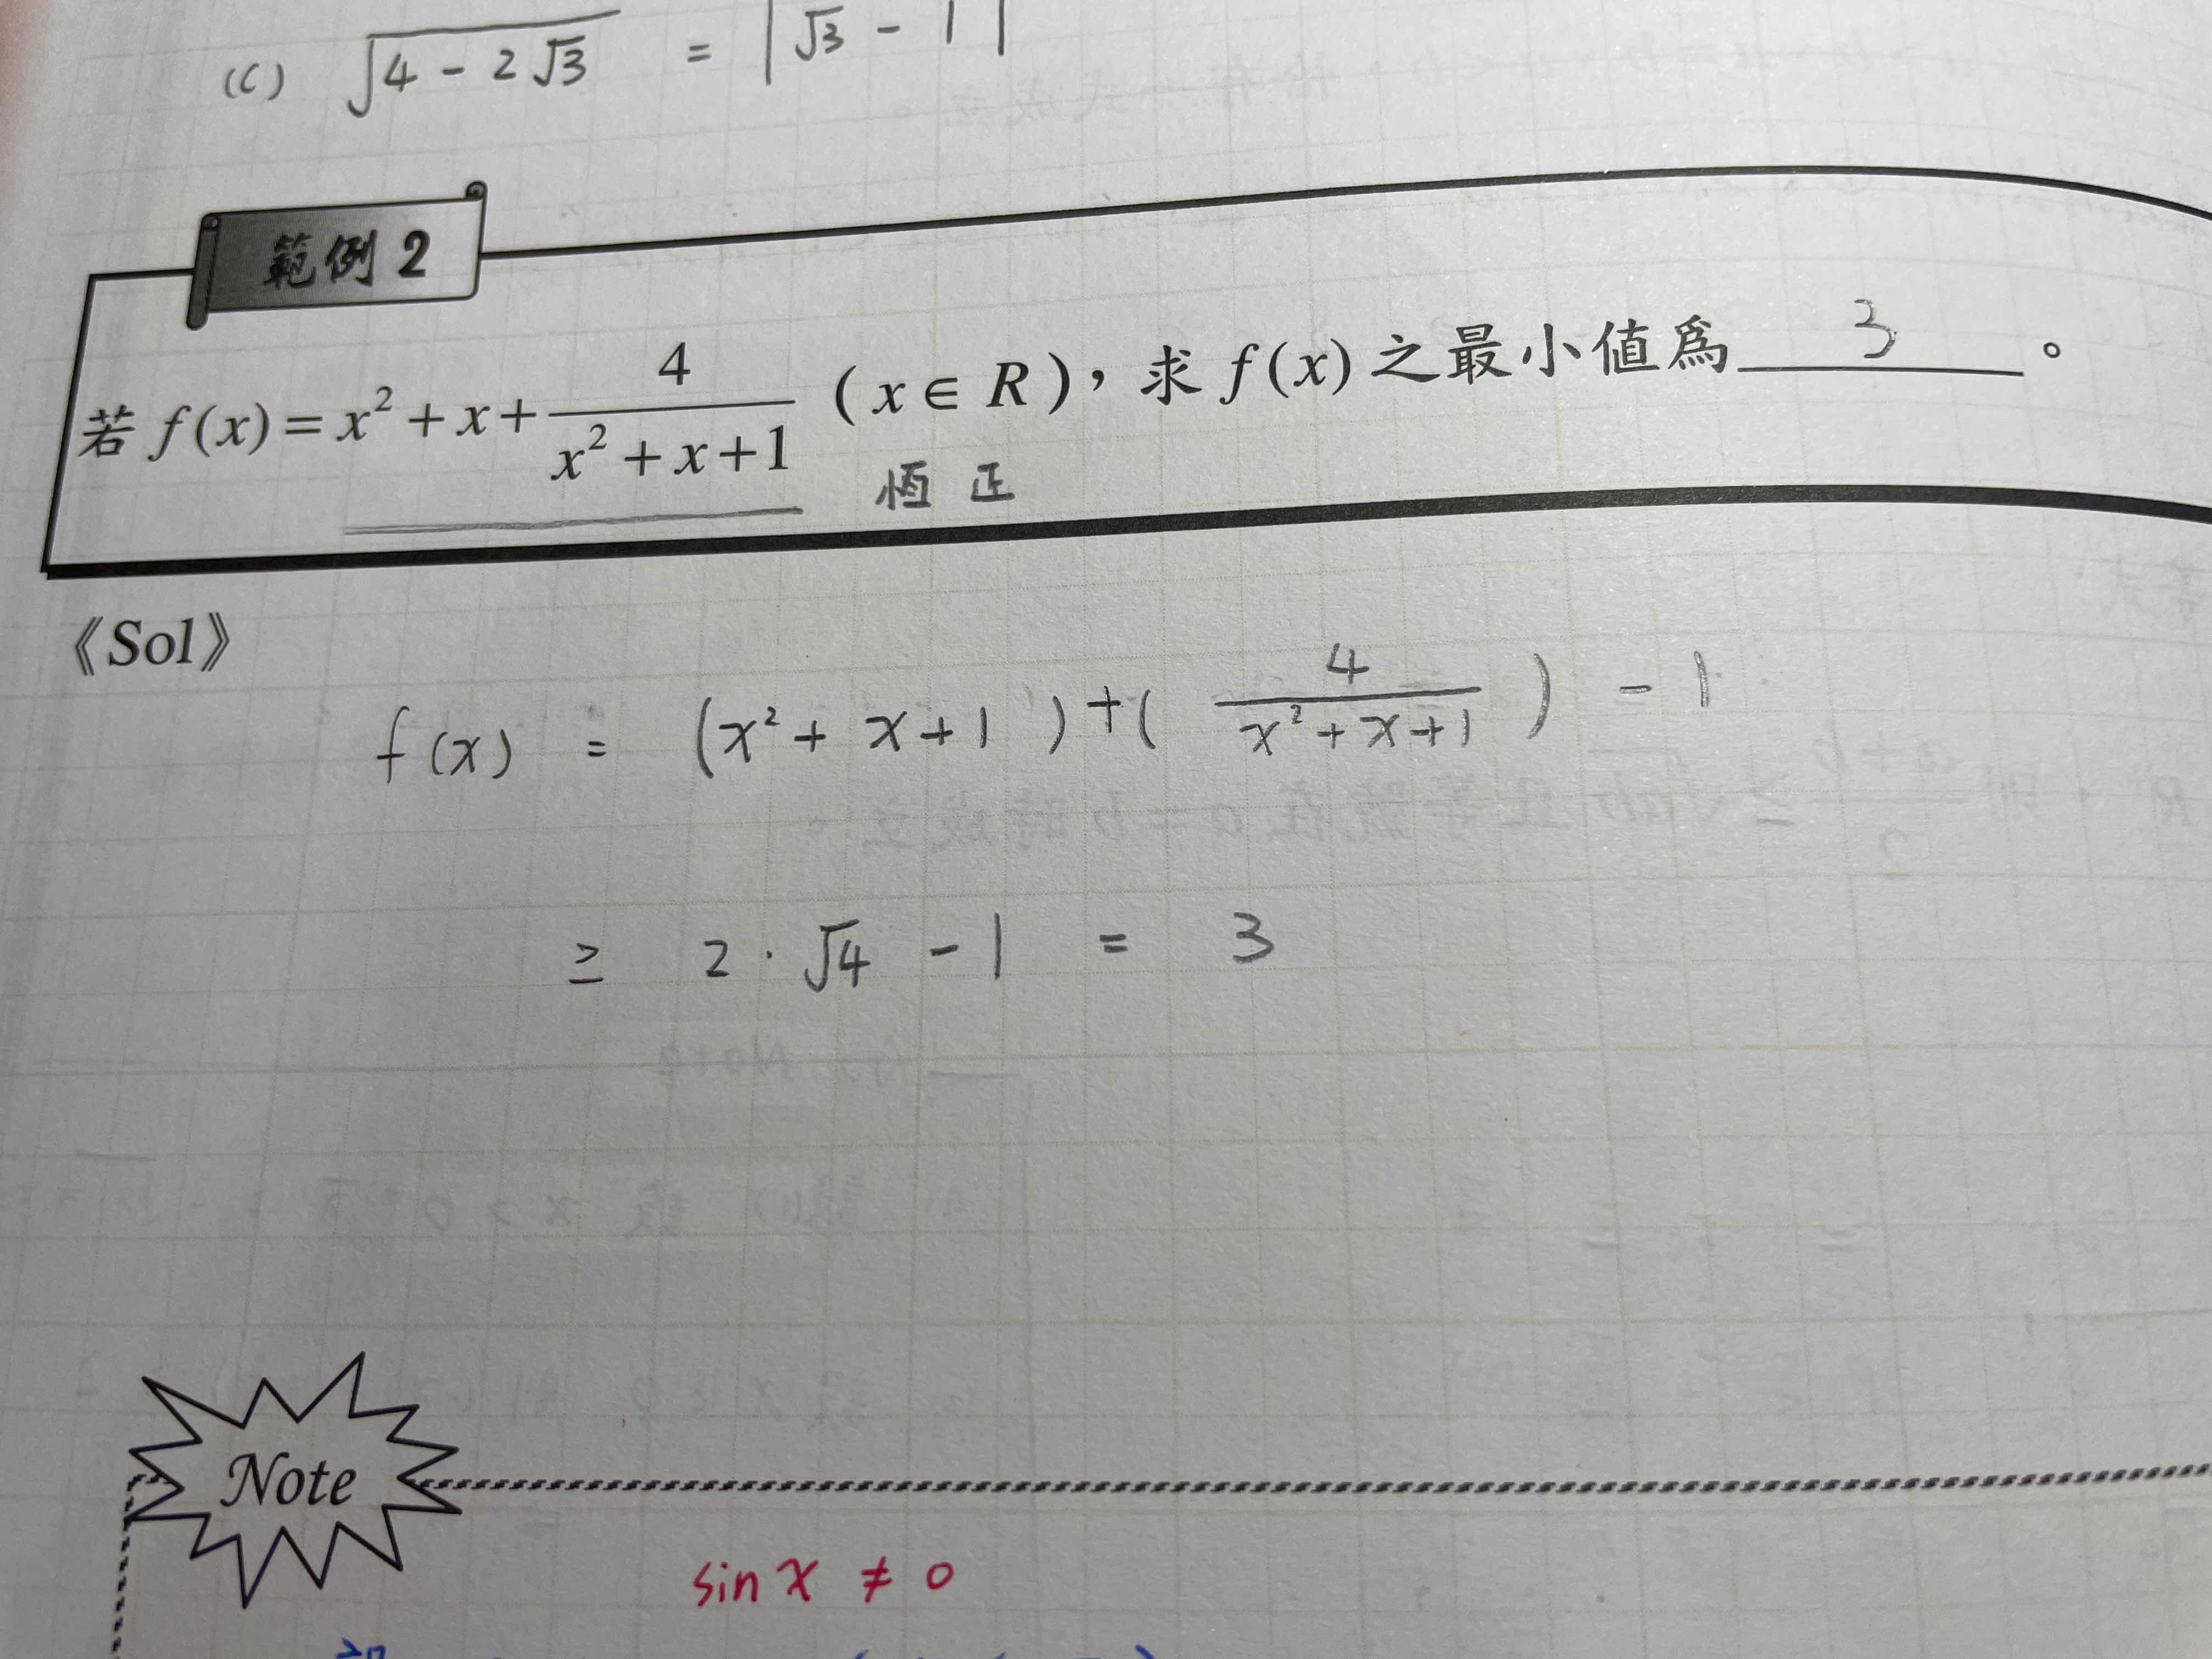 (C) √(4 - 2√3) = |√3 - 1|
範例 2
若 f(x) = x² + x + 4/(x² + x + 1) ( x ∈ R ),求 f(x) 之最小值為 3 。
恆正
《Sol》
f(x) = (x² + x + 1) + (4/(x² + x + 1)) - 1
≥ 2 · √4 - 1 = 3
Note
sin x ≠ 0